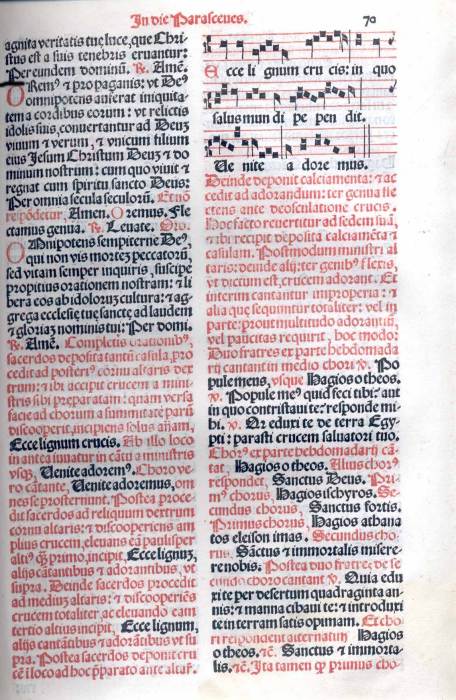 In die Parasceues. 70
agnita veritatis tuę luce, que Chri-
stus est a suis tenebris eruantur:
Per eundem dominũ. ℟. Amẽ.
ORem⁹ ⁊ pro paganis: vt De⁹
omnipotens auferat iniquita
tem a cordibus eorum: vt relictis
idolis suis, conuertantur ad Deuz
viuum ⁊ verum, ⁊ vnicum filium
eius Jesum Christum Deuz ⁊ do
minum nostrum: cum quo viuit ⁊
regnat cum spiritu sancto Deus:
Per omnia secula seculorũ. Et nõ
respõdetur, Amen. Oremus. Fle
ctamus genua. ℟. Leuate. Oro.
OMnipotens sempiterne De⁹,
qui non vis mortez peccatorũ,
sed vitam semper inquiris, suscipe
propitius orationem nostram: ⁊ li
bera eos ab idoloruz cultura: ⁊ ag-
grega ecclesię tuę sanctę, ad laudem
⁊ gloriaz nominis tui: Per domi.
℟. Amẽ. Completis orationib⁹,
sacerdos deposita tantũ casula, pro
cedit ad posteri⁹ cornu altaris dex
trum: ⁊ ibi accipit crucem a mini-
stris sibi preparatam: quam versa
facie ad chorum a summitate parũ
discooperit, incipiens solus añam,
Ecce lignum crucis. Ab illo loco
in antea iuuatur in cãtu a ministris
vsq; Uenite adorem⁹. Choro ve-
ro cãtante, Uenite adoremus, om
nes se prosternunt. Postea proce-
dit sacerdos ad reliquum dextrum
cornu altaris: ⁊ discooperiens am
plius crucem, eleuans eã paulisper
alti⁹ q̃ primo, incipit, Ecce lignuz,
alijs cãtantibus ⁊ adorantibus, vt
supra. Deinde sacerdos procedit
ad mediuz altaris: ⁊ discooperiẽs
crucem totaliter, ac eleuando eam
tertio altius incipit, Ecce lignum,
alijs cantãtibus ⁊ adorãtibus vt su
pra. Postea sacerdos deponit cru
cẽ i loco ad hoc p̃parato ante altar̃.
Ecce li gnum cru cis: in quo
salus mun di pe pen dit.
Ue nite a dore mus.
Deinde deponit calciamenta: ⁊ ac
cedit ad adorandum: ter genua fle
ctens ante deosculatione crucis.
Hoc facto reuertitur ad sedem suã,
⁊ ibi recipit deposita calciamẽta ⁊
casulam. Postmodum ministri al
taris: deinde alij: ter genib⁹ flexis,
vt dictum est, crucem adorant. Et
interim cantantur improperia: ⁊
alia que sequuntur totaliter: vel in
parte: prout multitudo adorantiũ,
vel paucitas requirit, hoc modo:
Duo fratres ex parte hebdomada
rij cantant in medio chori ℣. Po
pule meus, vsque Hagios o theos.
℣. Popule me⁹ quid feci tibi: aut
in quo contristaui te: responde mi-
hi. ℣. Qr eduxi te de terra Egy-
pti: parasti crucem saluatori tuo.
Chor⁹ ex parte hebdomadarij cã-
tat, Hagios o theos. Alius chor⁹
respondet, Sanctus Deus. Pri-
m⁹ chorus, Hagios ischyros. Se-
cundus chorus, Sanctus fortis.
Primus chorus, Hagios athana
tos eleison imas. Secundus cho-
rus. Sãctus ⁊ immortalis misere-
re nobis. Postea duo fratres de se
cundo choro cantant ℣. Quia edu
xi te per desertum quadraginta an-
nis: ⁊ manna cibaui te: ⁊ introduxi
te in terram satis opimam. Et cho-
ri respondent alternatim Hagios
o theos. ⁊c̃. Sanctus ⁊ immorta-
lis. ⁊c̃. Ita tamen q̃ primus cho-